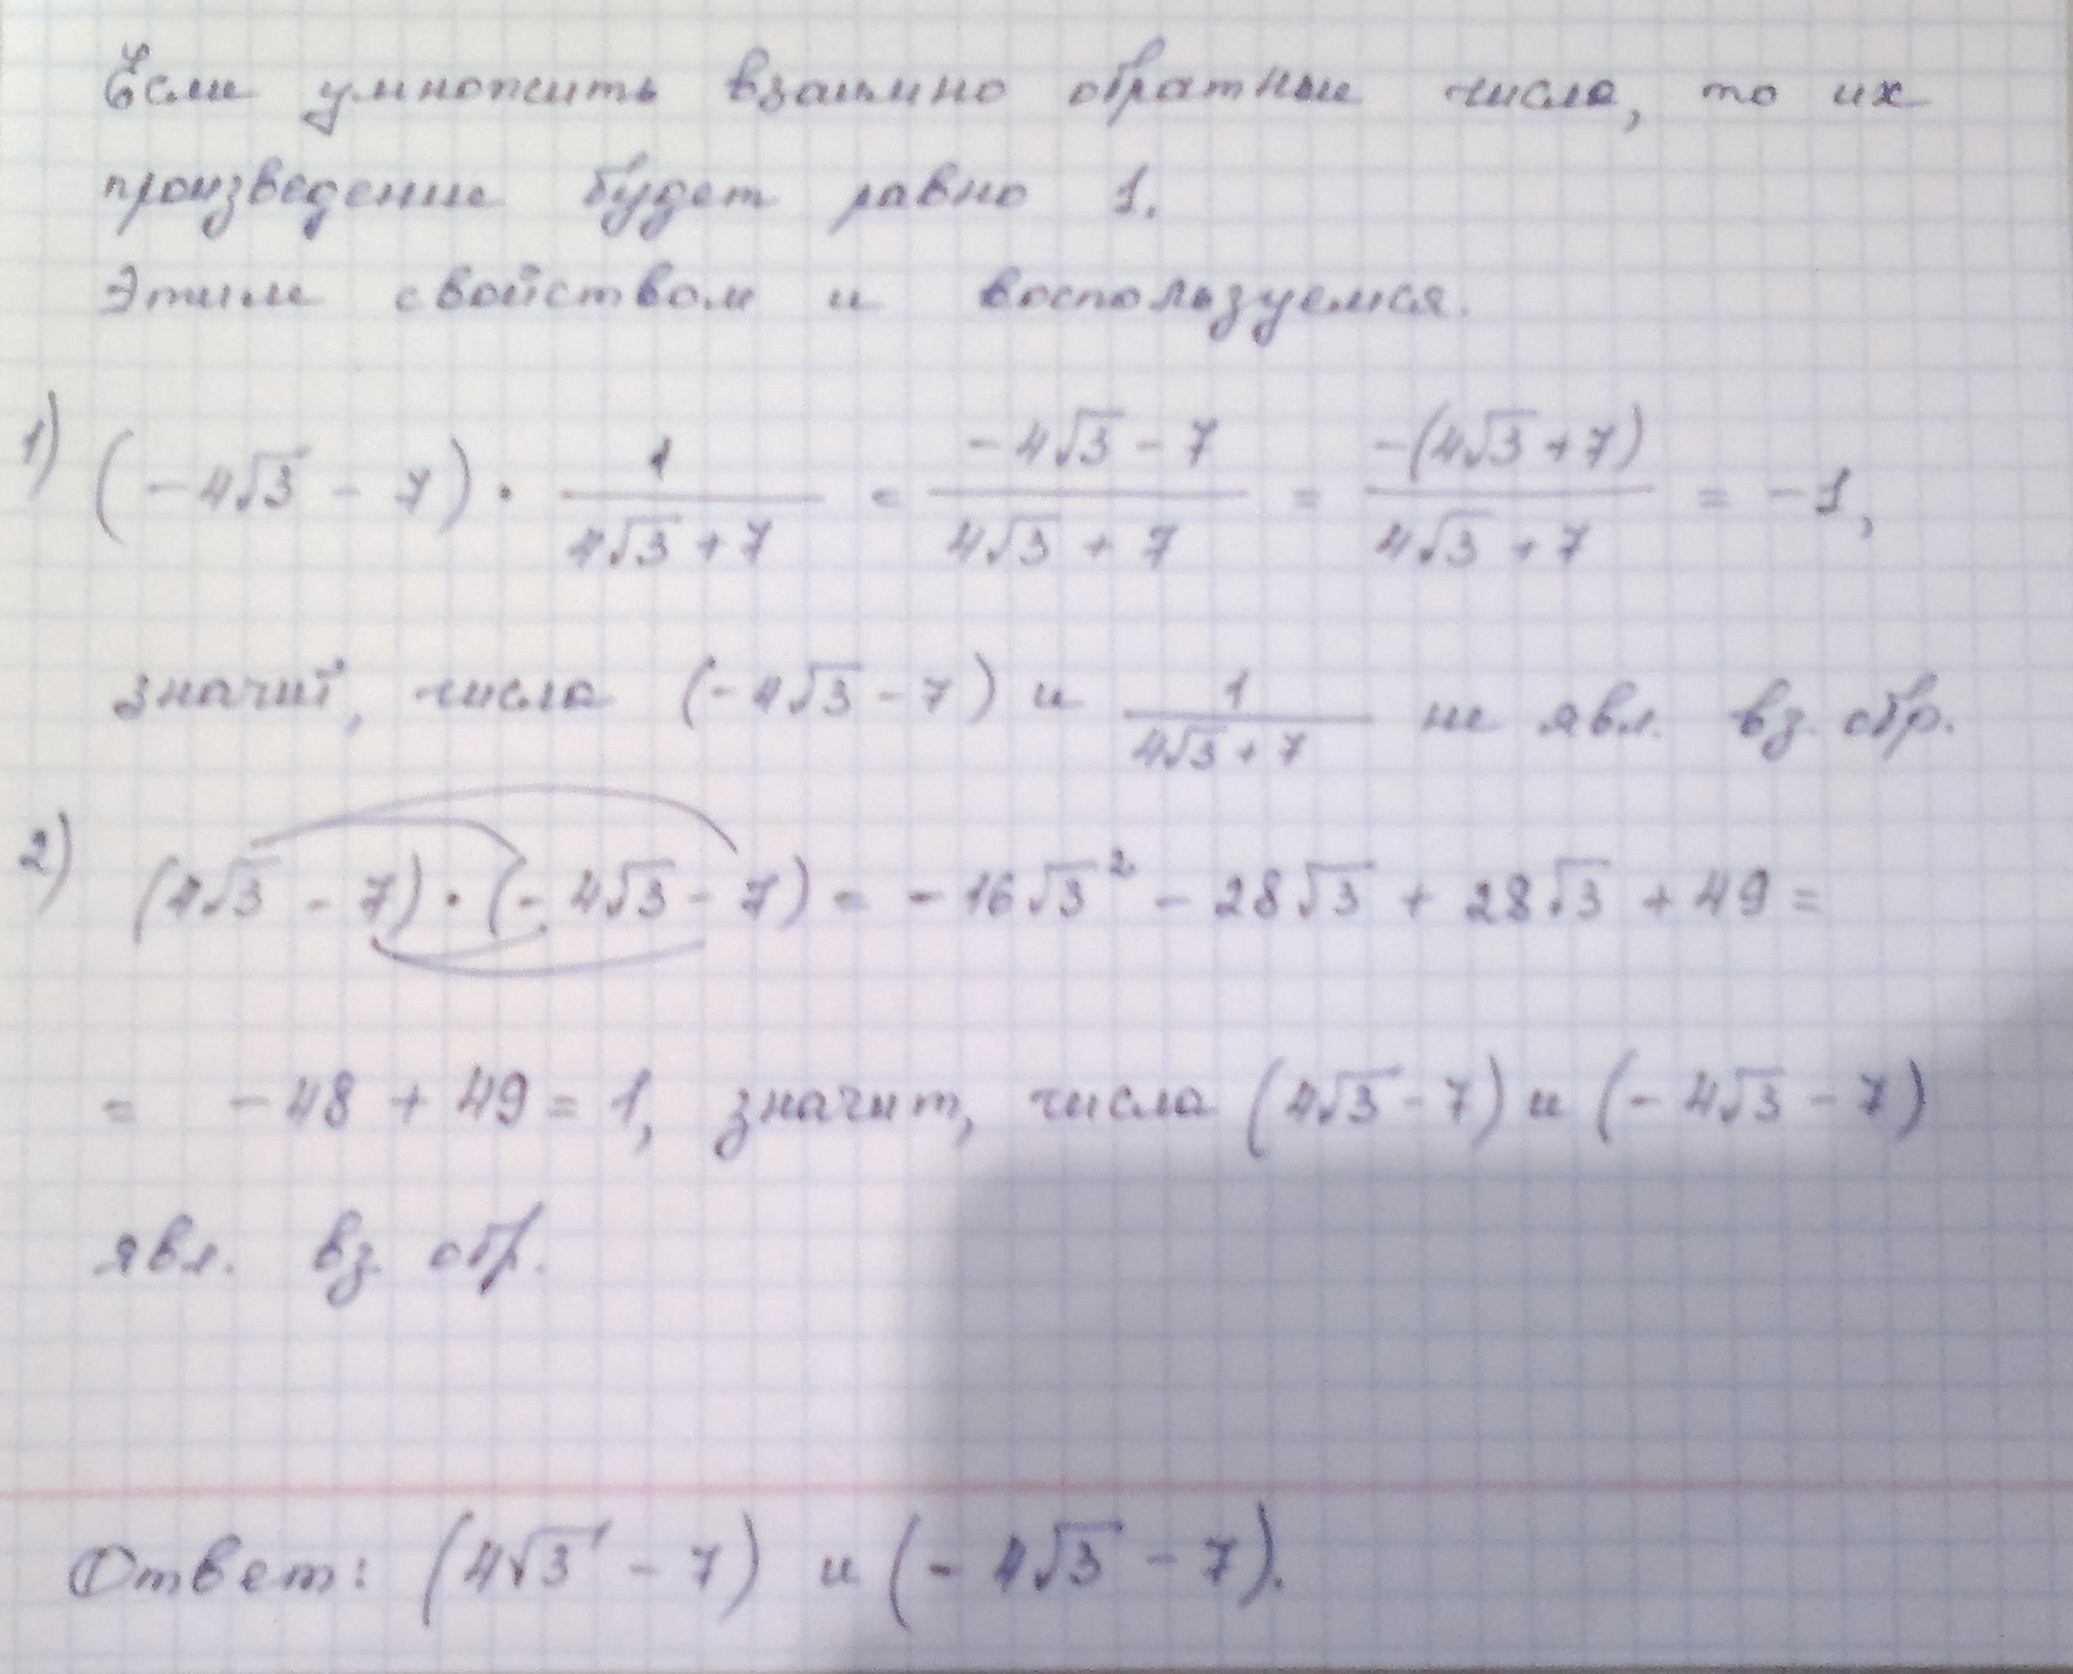 Если умножить взаимно обратные числа, то их
произведение будет равно 1.
Этим свойством и воспользуемся.
1) (-4√3 - 7) · 1/(4√3 + 7) = (-4√3 - 7)/(4√3 + 7) = -(4√3 + 7)/(4√3 + 7) = -1,
значит, числа (-4√3 - 7) и 1/(4√3 + 7) не явл. вз. обр.
2) (4√3 - 7) · (-4√3 - 7) = -16√3² - 28√3 + 28√3 + 49 =
= -48 + 49 = 1, значит, числа (4√3 - 7) и (-4√3 - 7)
явл. вз. обр.
Ответ: (4√3 - 7) и (-4√3 - 7).